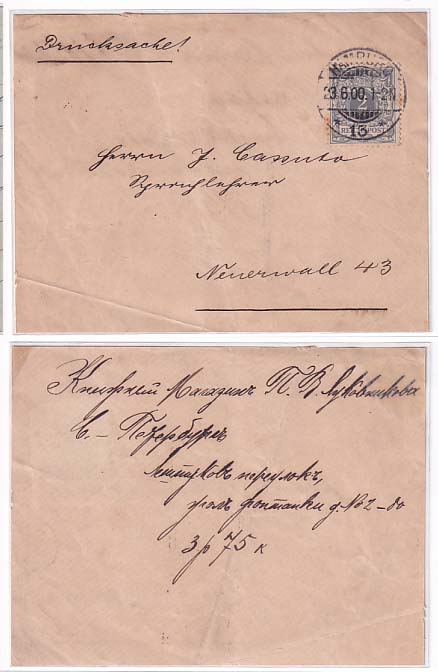 Drucksache!
HAMBURG
23.6.00. 1-2N
* 13 *
2
REICHSPOST
Herrn J. Cassuto
Sprachlehrer
Neuerwall 43
Книжный Магазинъ П. В. Луковникова
С.-Петербургъ
Лештуковъ переулокъ,
уголъ фонтанки д. №2-ой
3 р 75 к